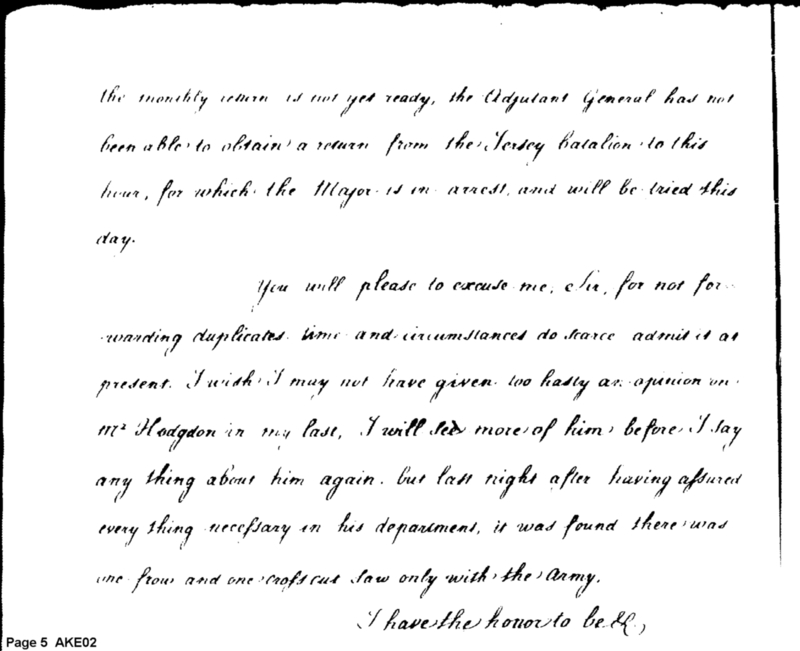 the monthly return is not yet ready, the Adjutant General has not
been able to obtain a return from the Jersey batalion to this
hour, for which the Major is in arrest, and will be tried this
day.
You will please to excuse me, Sir, for not for-
warding duplicates. time and circumstances do scarce admit it at
present. I wish I may not have given too hasty an opinion on
Mr Hodgdon in my last, I will see more of him before I say
any thing about him again. but last night after having assured
every thing necessary in his department, it was found there was
one frow and one cross cut saw only with the Army.
I have the honor to be &c,
Page 5 AKE02